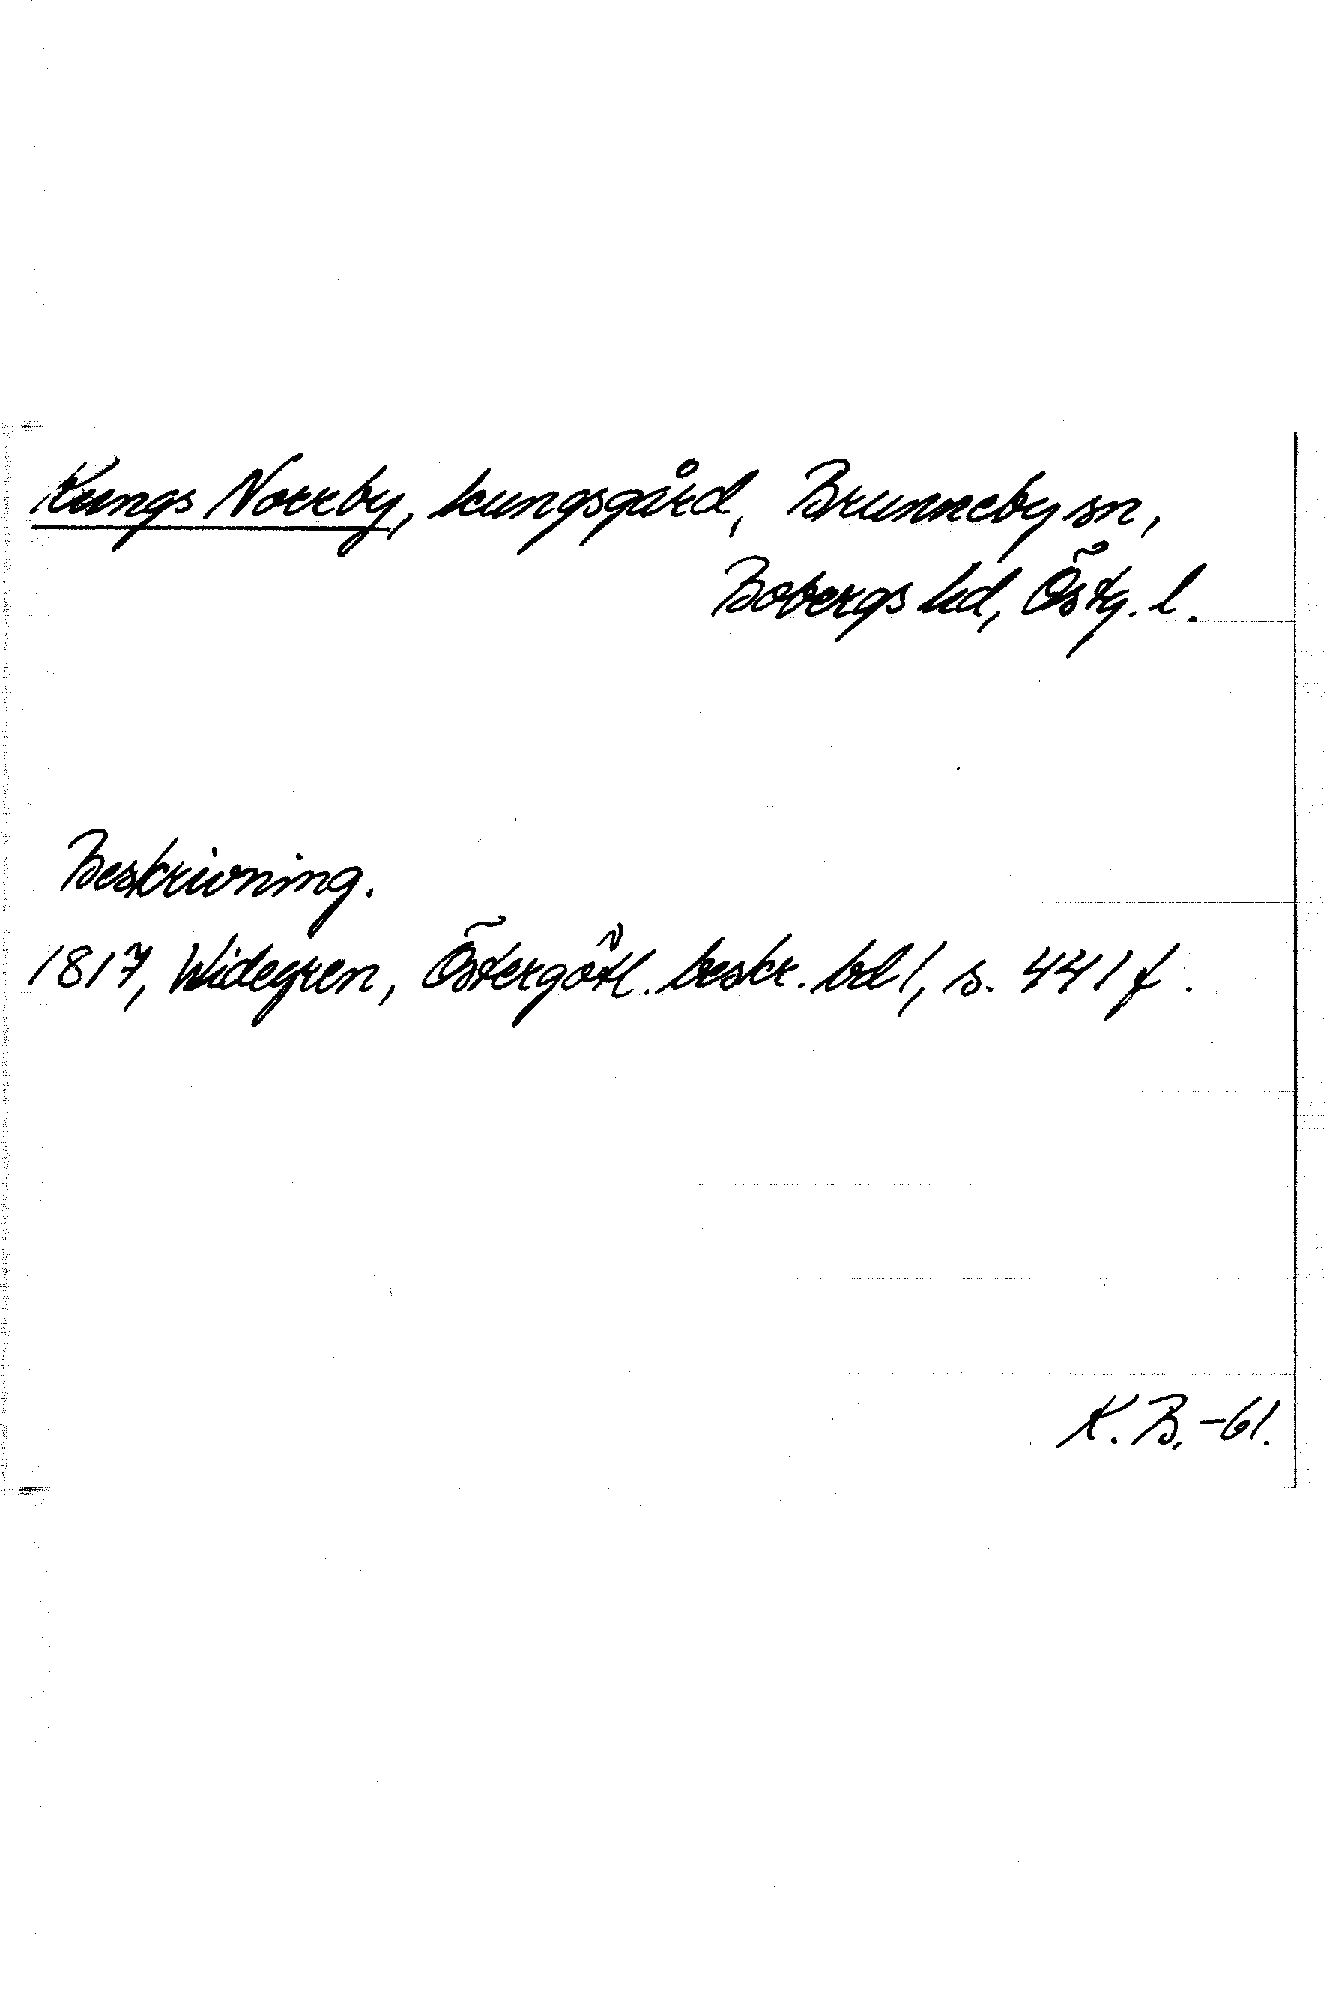 Kungs Norrby, kungsgård, Brunneby sn,
Bobergs hd, Östg. l.
Beskrivning.
1817, Widegren, Östergötl. beskr. bd 1, s. 441 f.
K. B. -61.